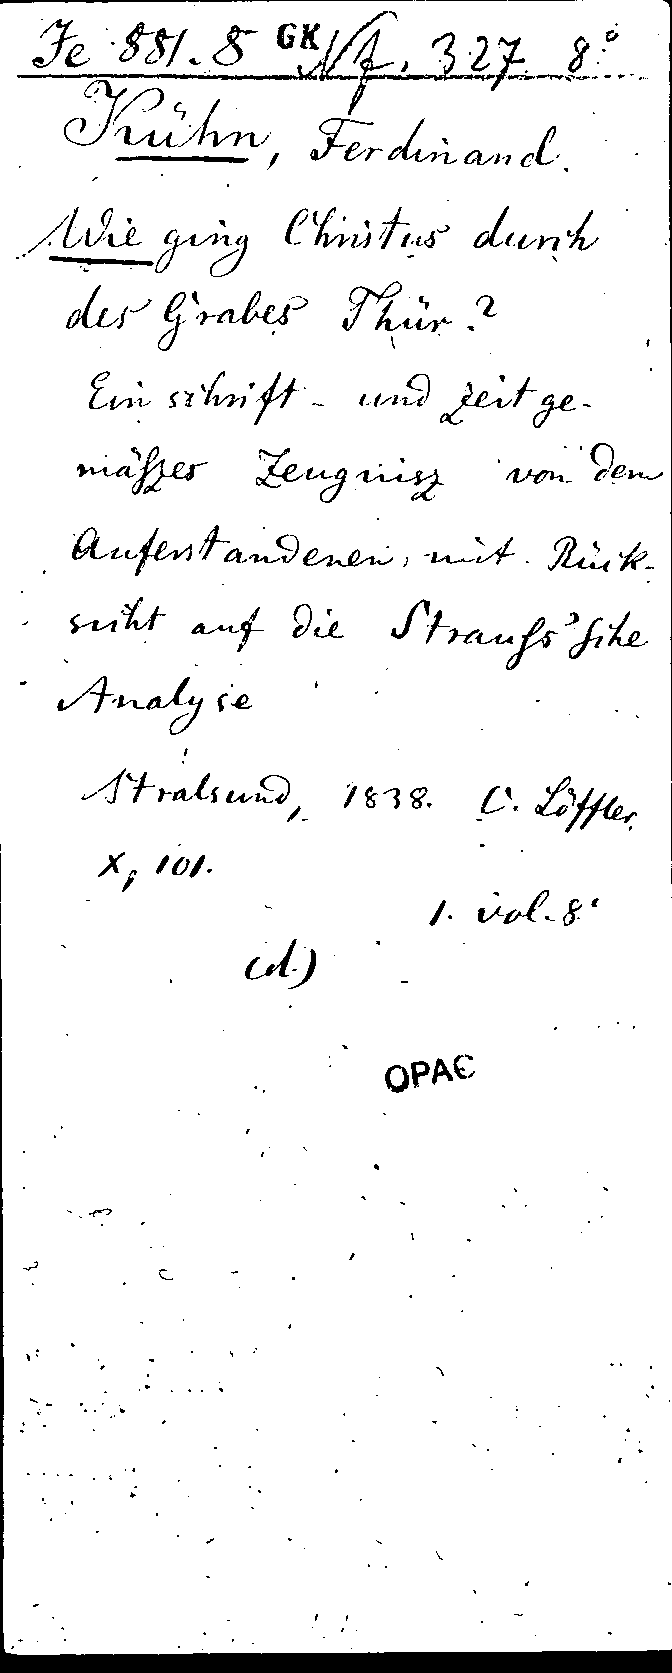 Fe 881.8 GK Nf. 327. 8°
Kühn, Ferdinand.
Wie ging Christus durch
des Grabes Thür?
Ein schrift- und zeitge-
mäßzes Zeugnisz von dem
Auferstandenen, mit Rück-
sicht auf die Strauſs'ſche
Analyse
Stralsund, 1838. C. Löffler.
X, 101.
1. vol. 8°
(d.)
OPAC